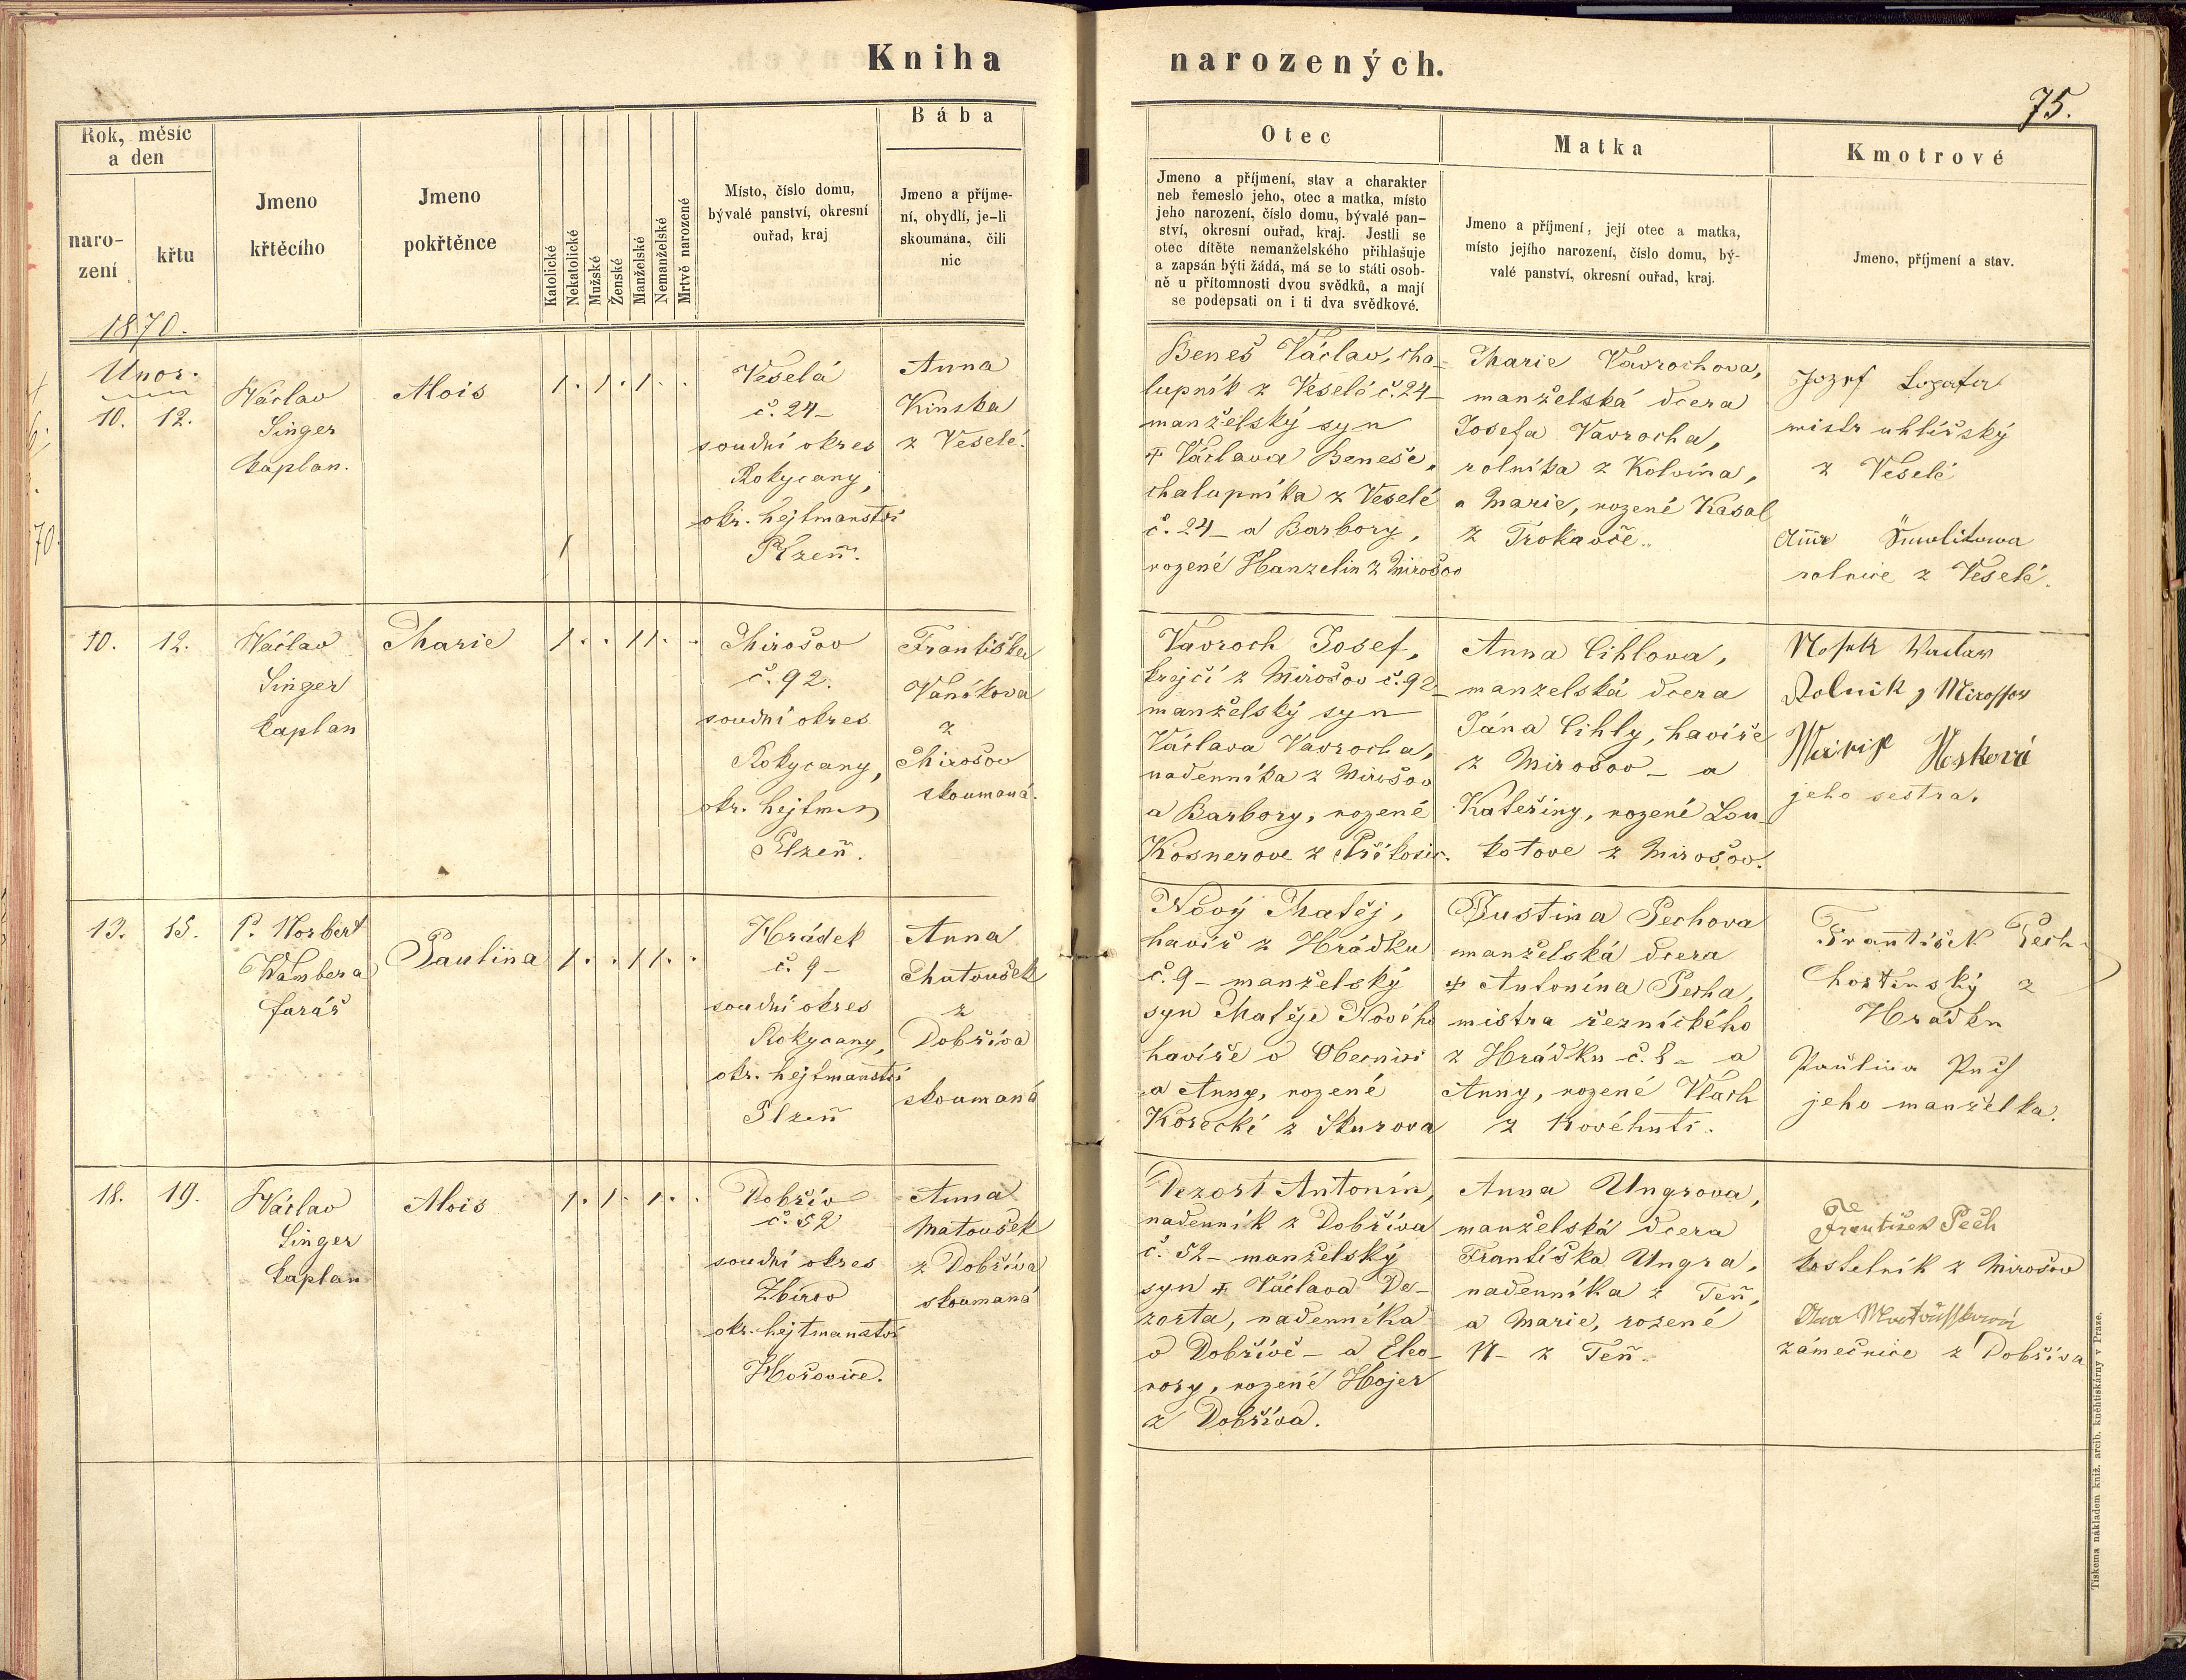 Kniha narozených.
75.
Rok, měsíc
a den
naro-
zení
křtu
Jmeno
křtěcího
Jmeno
pokřtěnce
Katolické
Nekatolické
Mužské
Ženské
Manželské
Nemanželské
Mrtvě narozené
Místo, číslo domu,
bývalé panství, okresní
ouřad, kraj
Bába
Jmeno a příjme-
ní, obydlí, je-li
skoumána, čili
nic
Otec
Jmeno a příjmení, stav a charakter
neb řemeslo jeho, otec a matka, místo
jeho narození, číslo domu, bývalé pan-
ství, okresní ouřad, kraj. Jestli se
otec dítěte nemanželského přihlašuje
a zapsán býti žádá, má se to státi osob-
ně u přítomnosti dvou svědků, a mají
se podepsati on i ti dva svědkové.
Matka
Jmeno a příjmení, její otec a matka,
místo jejího narození, číslo domu, bý-
valé panství, okresní ouřad, kraj.
Kmotrové
Jmeno, příjmení a stav.
1870.
Unor.
10. 12.
Václav
Singer
kaplan.
Alois
1. 1. 1. .
Veselá
č. 24
soudní okres
Rokycany,
okr. hejtmanství
Plzeň.
Anna
Kinska
z Veselé.
Beneš Václav, cha-
lupník z Veselé č. 24
manželský syn
† Václava Beneše,
chalupníka z Veselé
č. 24 a Barbory,
rozené Hanzelin z Mirošov
Marie Vavrochova,
manželská dcera
Josefa Vavrocha,
rolníka z Kolvína,
a Marie, rozené Kasal
z Trokavče.
Jozef
mistr uhlířský
z Veselé
rolnice z Veselé.
10. 12.
Václav
Singer
kaplan
Marie
1. . 1 1. .
Mirošov
č. 92.
soudní okres
Rokycany,
okr. hejtman
Plzeň.
Františka
Vaníkova
z
Mirošov
skoumaná.
Vavroch Josef,
krejčí z Mirošov č. 92
manželský syn
Václava Vavrocha,
nadenníka z Mirošov
a Barbory, rozené
Kosnerove z Příkosic.
Anna Cihlova,
manzelská dcera
Jána Cihly, havíře
z Mirošov a
Kateřiny, rozené Lou-
kotove z Mirošov.
Nosek Waclaw
Rolnik z Mirossow
Nosková
jeho sestra.
13. 15.
P. Norbert
Wambera
farář
Paulina
1. . 1 1. .
Hrádek
č. 9
soudní okres
Rokycany,
okr. hejtmanství
Plzeň
Anna
Matoušek
z
Dobříva
skoumaná
Nový Matěj,
havíř z Hrádku
č. 9 manželský
syn Matěje Nového
havíře v Obecnici
a Anny, rozené
Korecki z Skurova
Justina Pechova
manželská dcera
† Antonína Pecha,
mistra řeznického
z Hrádku č. 8 a
Anny, rozené Vlach
z Novéhuti.
František Pech
hostinský z
Hrádku
Paulina Pech
jeho manželka.
18. 19.
Václav
Singer
kaplan
Alois
1. 1. 1. .
Dobřív
č. 52
soudní okres
Zbirov
okr. hejtmanství
Hořovice.
Anna
Matoušek
z Dobříva
skoumaná
Dezort Antonín,
nadenník z Dobříva
č. 52 manželský
syn † Václava De-
zorta, nadenníka
v Dobřívě a Eleo-
nory, rozené Hojer
z Dobříva.
Anna Ungrova,
manželská dcera
Františka Ungra,
nadenníka z Teň,
a Marie, rozené
N- z Teň.
František Pech
kostelník z Mirošov
zámečnice z Dobříva
Tiskema nákladem kniž. arcib. kněhtiskárny v Praze.